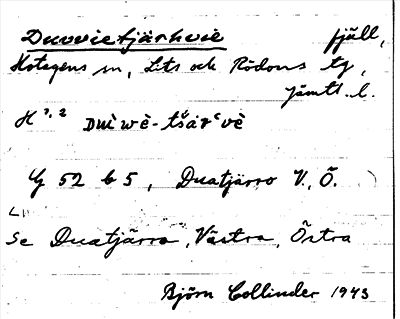 Duovvietjärhvie fjäll,
Hotagens sn, Lits och Rödöns tg,
Jämtl. l.
H 7, 2 Duìwè-tšár‘vè
G 52 b 5, Duatjärro V., Ö.
Se Duatjärro, Västra, Östra
Björn Collinder 1943